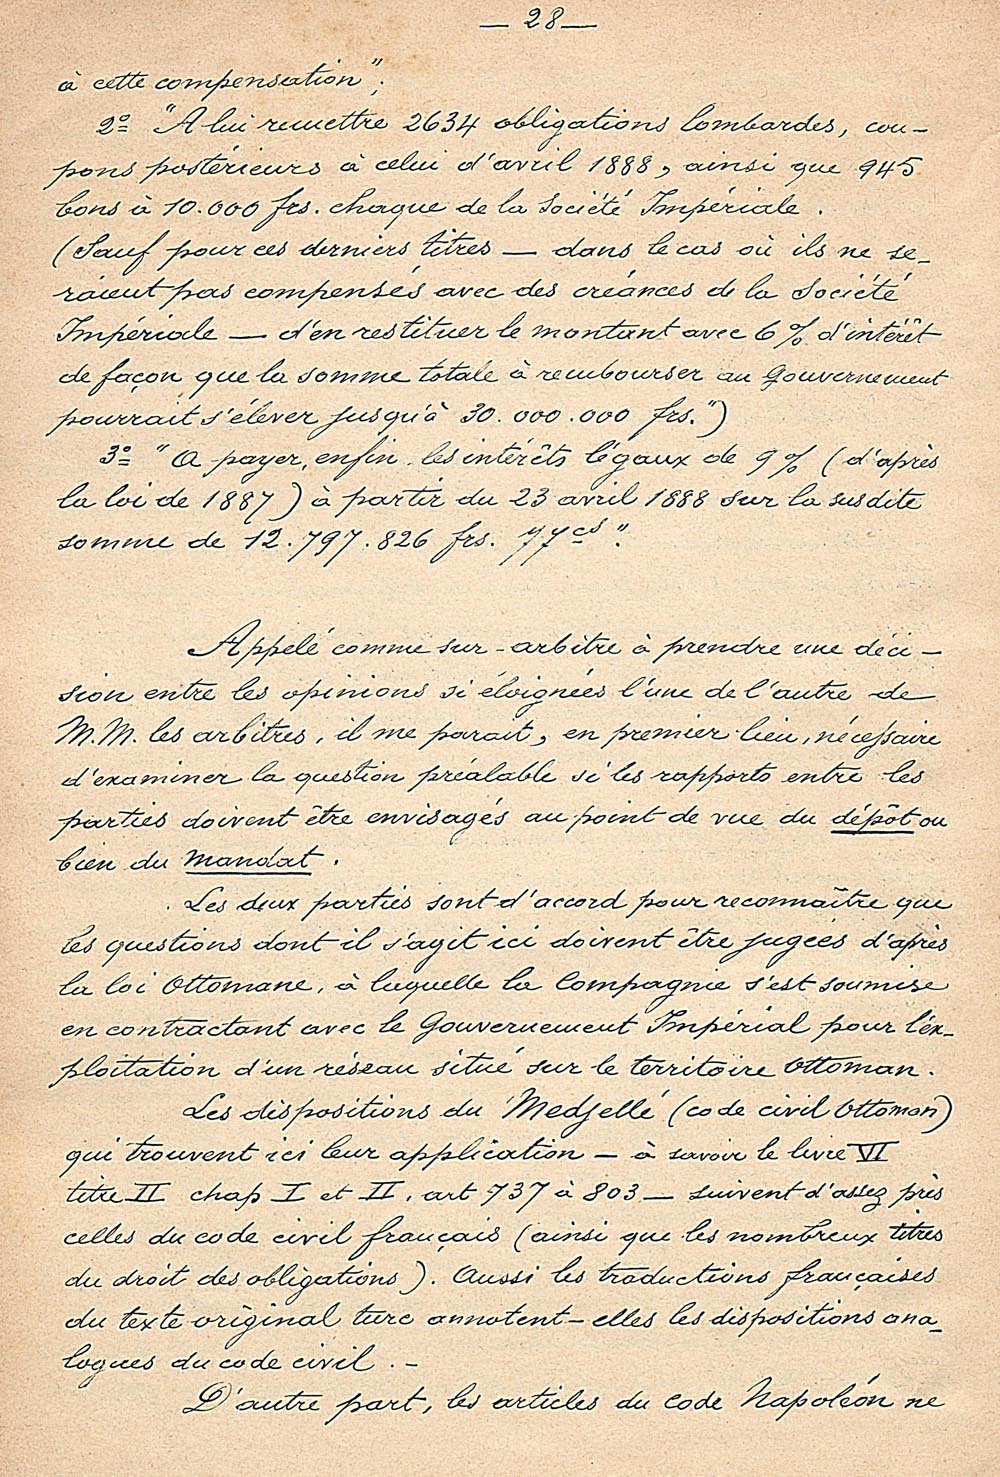 — 28 —
à cette compensation";
2º "A lui remettre 2634 obligations lombardes, cou-
pons postérieurs à celui d'avril 1888, ainsi que 945
bons à 10.000 frs. chaque de la Société Impériale.
(Sauf pour ces derniers titres — dans le cas où ils ne se-
raient pas compensés avec des créances de la Société
Impériale — d'en restituer le montant avec 6 % d'intérêt
de façon que la somme totale à rembourser au Gouvernement
pourrait s'élever jusqu'à 30.000.000 frs.")
3º "A payer, enfin les intérêts légaux de 9 % (d'après
la loi de 1887) à partir du 23 avril 1888 sur la susdite
somme de 12.797.826 frs. 77 cs".
Appelé comme sur-arbitre à prendre une déci-
sion entre les opinions si éloignées l'une de l'autre de
M.M. les arbitres, il me parait, en premier lieu, nécessaire
d'examiner la question préalable si les rapports entre les
parties doivent être envisagés au point de vue du dépôt ou
bien du Mandat.
Les deux parties sont d'accord pour reconnaître que
les questions dont il s'agit ici doivent être jugées d'après
la loi Ottomane, à laquelle la Compagnie s'est soumise
en contractant avec le Gouvernement Impérial pour l'ex-
ploitation d'un réseau situé sur le territoire Ottoman.
Les dispositions du Medjellé (code civil Ottoman)
qui trouvent ici leur application — à savoir le livre VI
titre II chap I et II, art 737 à 803 — suivent d'assez près
celles du code civil français (ainsi que les nombreux titres
du droit des obligations). Aussi les traductions françaises
du texte original turc annotent-elles les dispositions ana-
logues du code civil. -
D'autre part, les articles du Code Napoléon ne